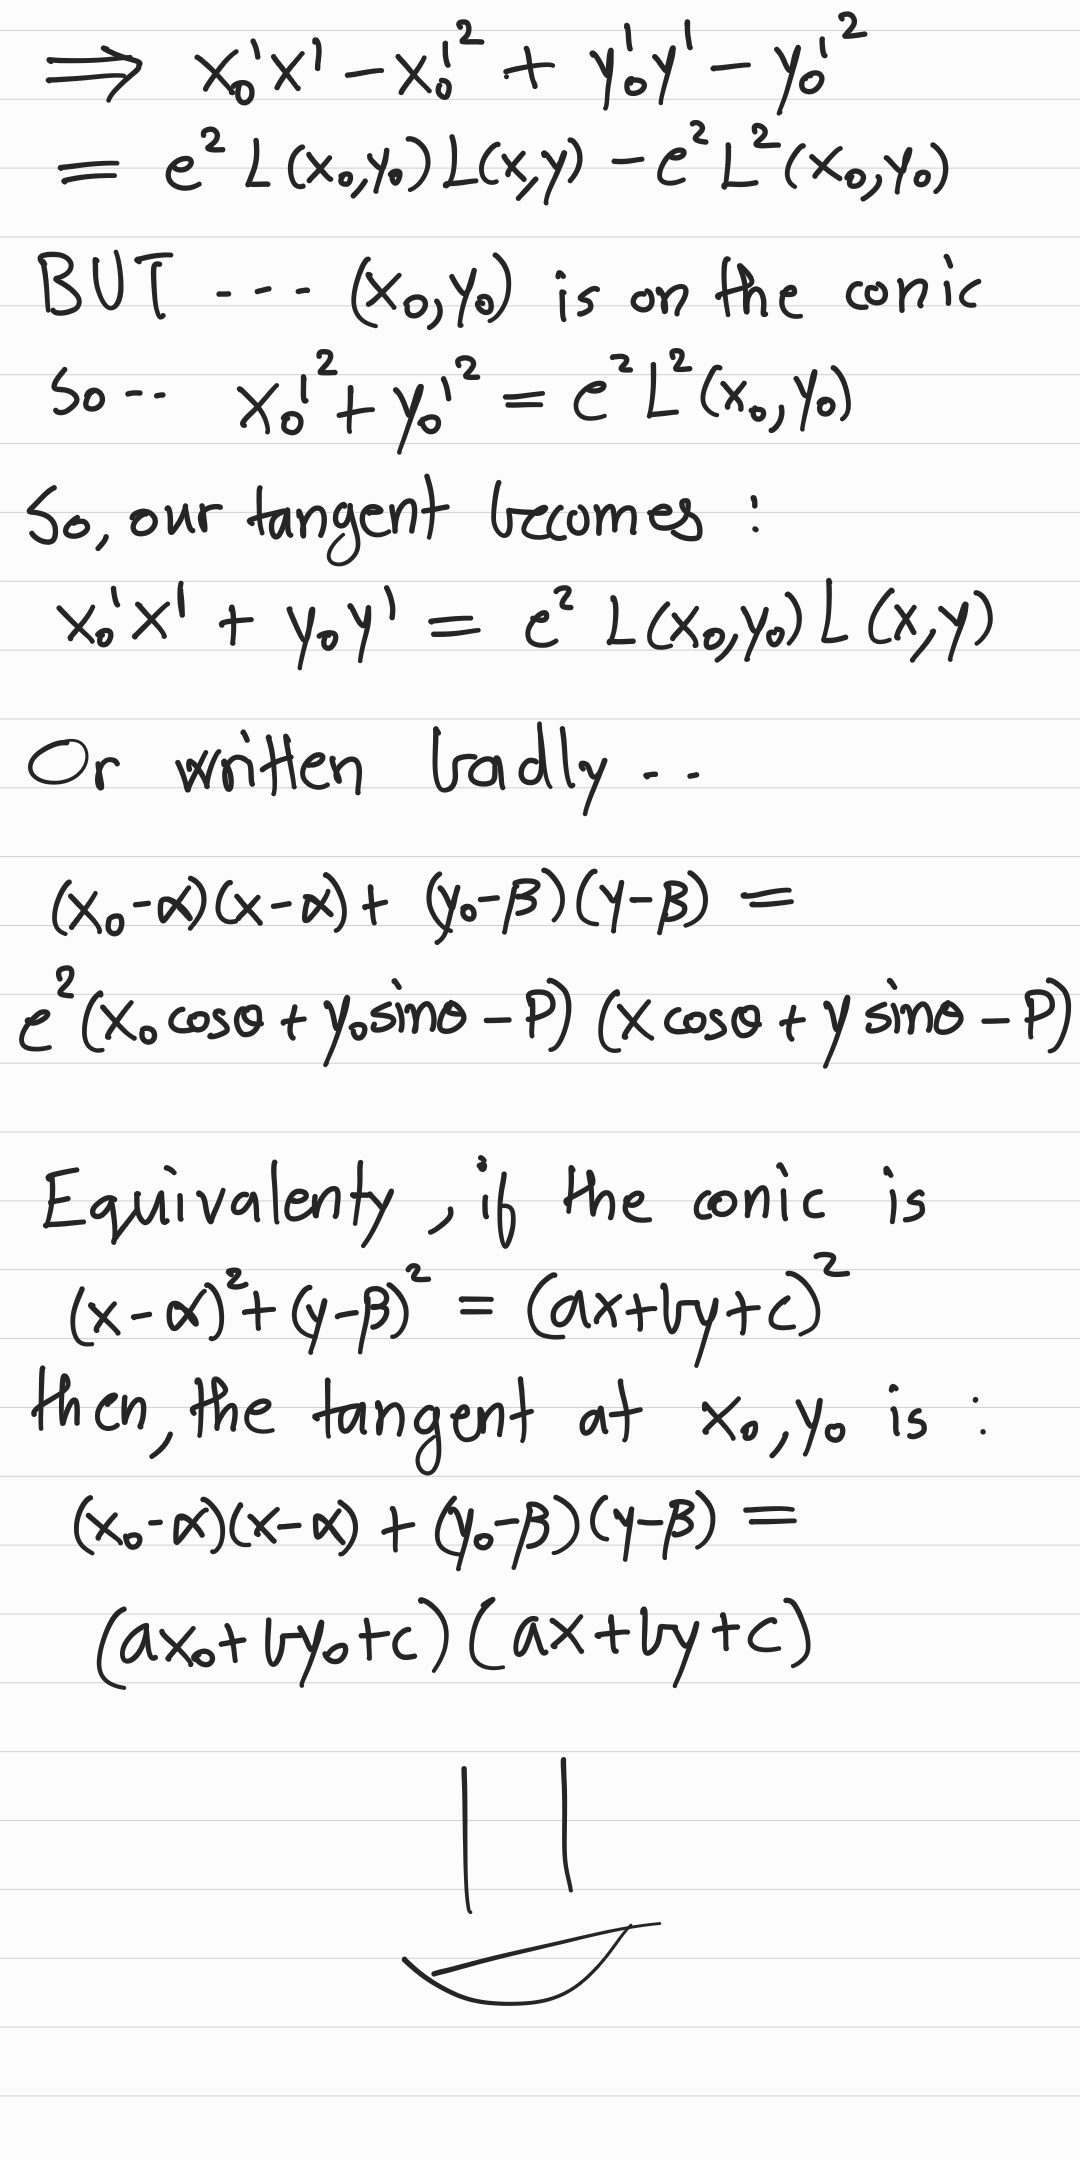 ⟹ x₀'x' − x₀'² + y₀'y' − y₀'²
= e² L(x₀,y₀) L(x,y) − e² L²(x₀,y₀)
BUT --- (x₀,y₀) is on the conic
So -- x₀'² + y₀'² = e² L²(x₀,y₀)
So, our tangent becomes :
x₀'x' + y₀y' = e² L(x₀,y₀) L(x,y)
Or written badly --
(x₀-α)(x-α) + (y₀-β)(y-β) =
e²(x₀ cosθ + y₀sinθ - P) (x cosθ + y sinθ - P)
Equivalenty, if the conic is
(x-α)² + (y-β)² = (ax+by+c)²
then, the tangent at x₀,y₀ is :
(x₀-α)(x-α) + (y₀-β)(y-β) =
(ax₀+by₀+c)(ax+by+c)